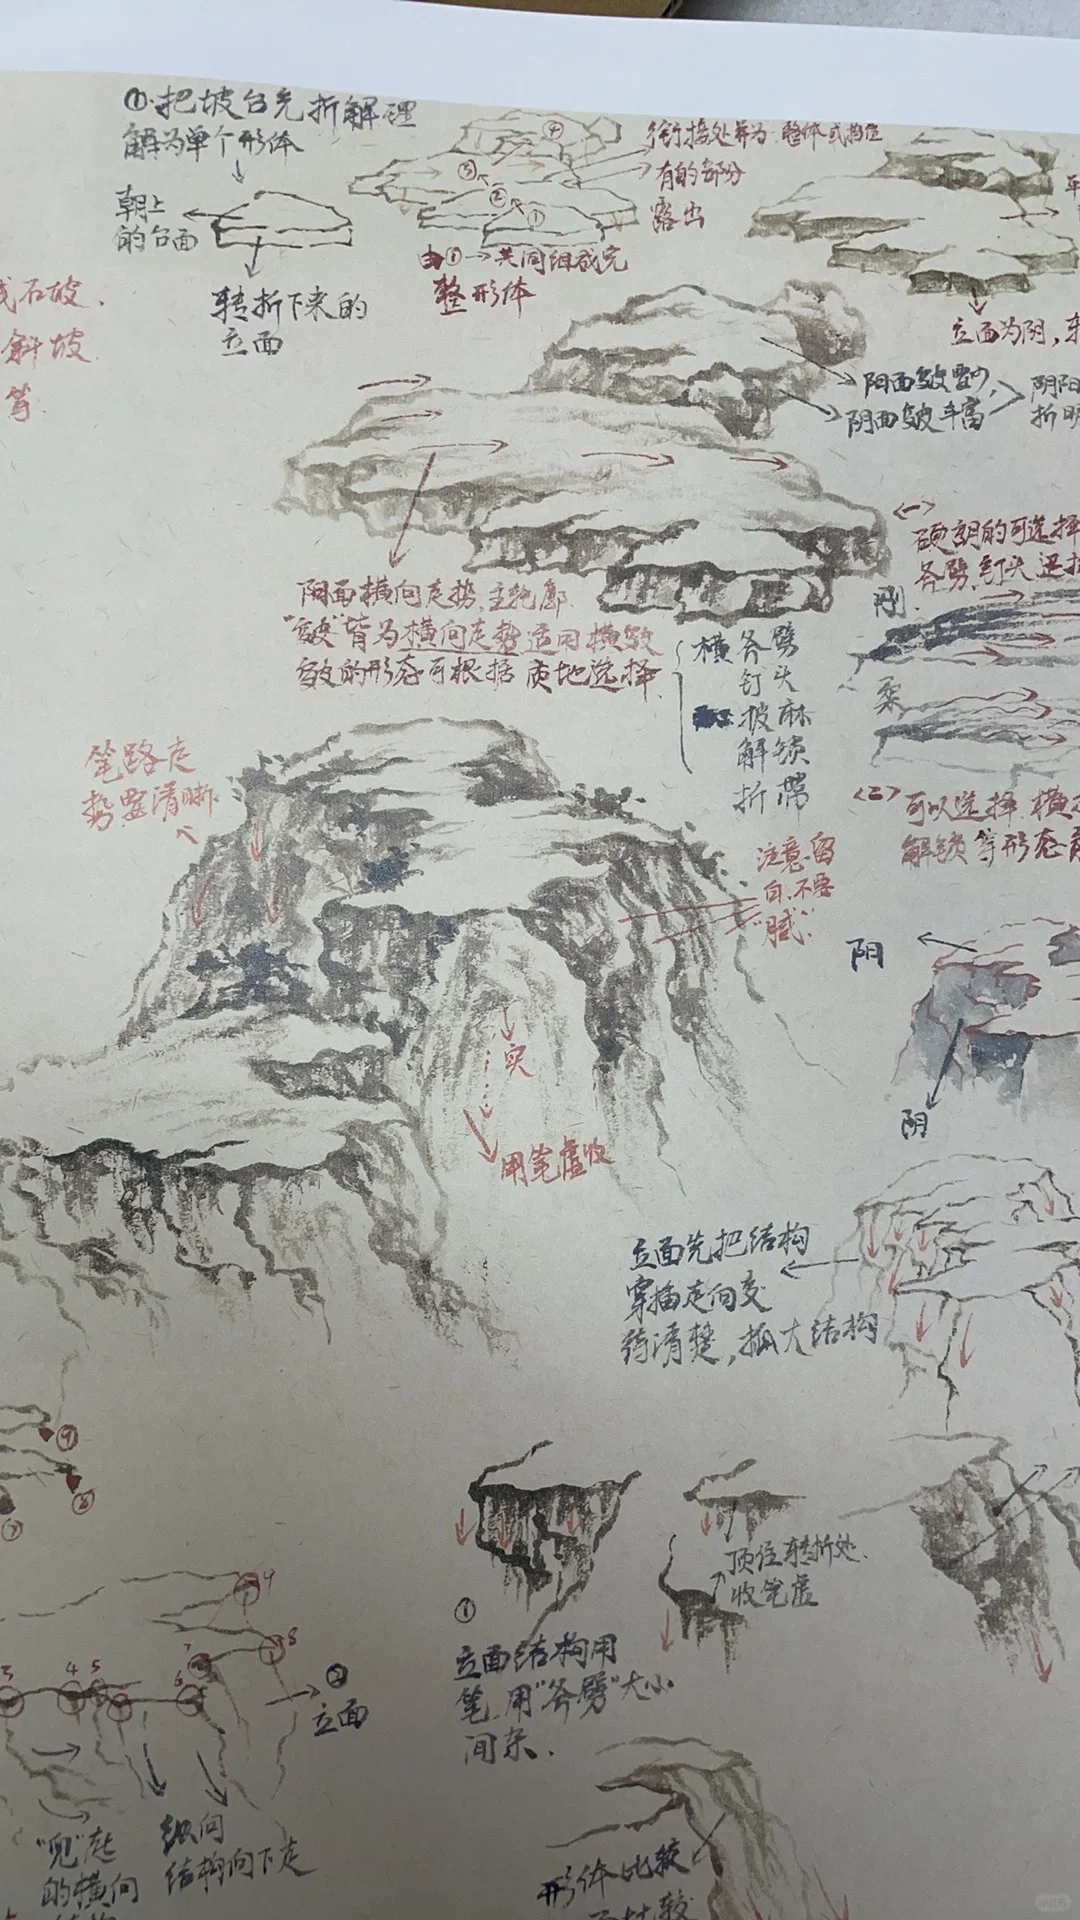 ①.把坡台先拆解理
解为单个形体
朝上
的台面
转折下来的
立面
④
③
②
①
由①→共同组成完
整形体
衔接处并为整体或挡住
有的部分
露出
立面为阴,
石坡.
斜坡
等.
阳面皴少,
阴面皴丰富
阴阳
折明
阳面横向走势,主轮廓.
"皴"皆为横向走势适用横皴
皴的形态可根据质地选择.
横斧劈
钉头
披麻
解锁
折带
硬朗的可选择
斧劈,钉头
刚.
柔
<二>可以选择横
解锁等形态
笔路走
势要清晰.
注意留
白.不要
"腻".
实
用笔虚收
阴
阴
立面先把结构
穿插走向交
待清楚,抓大结构
⑨
⑧
⑦
9
8
7
6
5
4
3
②
立面
"见"起
的横向
纵向
结构向下走
①
立面结构用
笔.用"斧劈"大小
间杂.
顶住转折处.
收笔虚
形体比较
比较